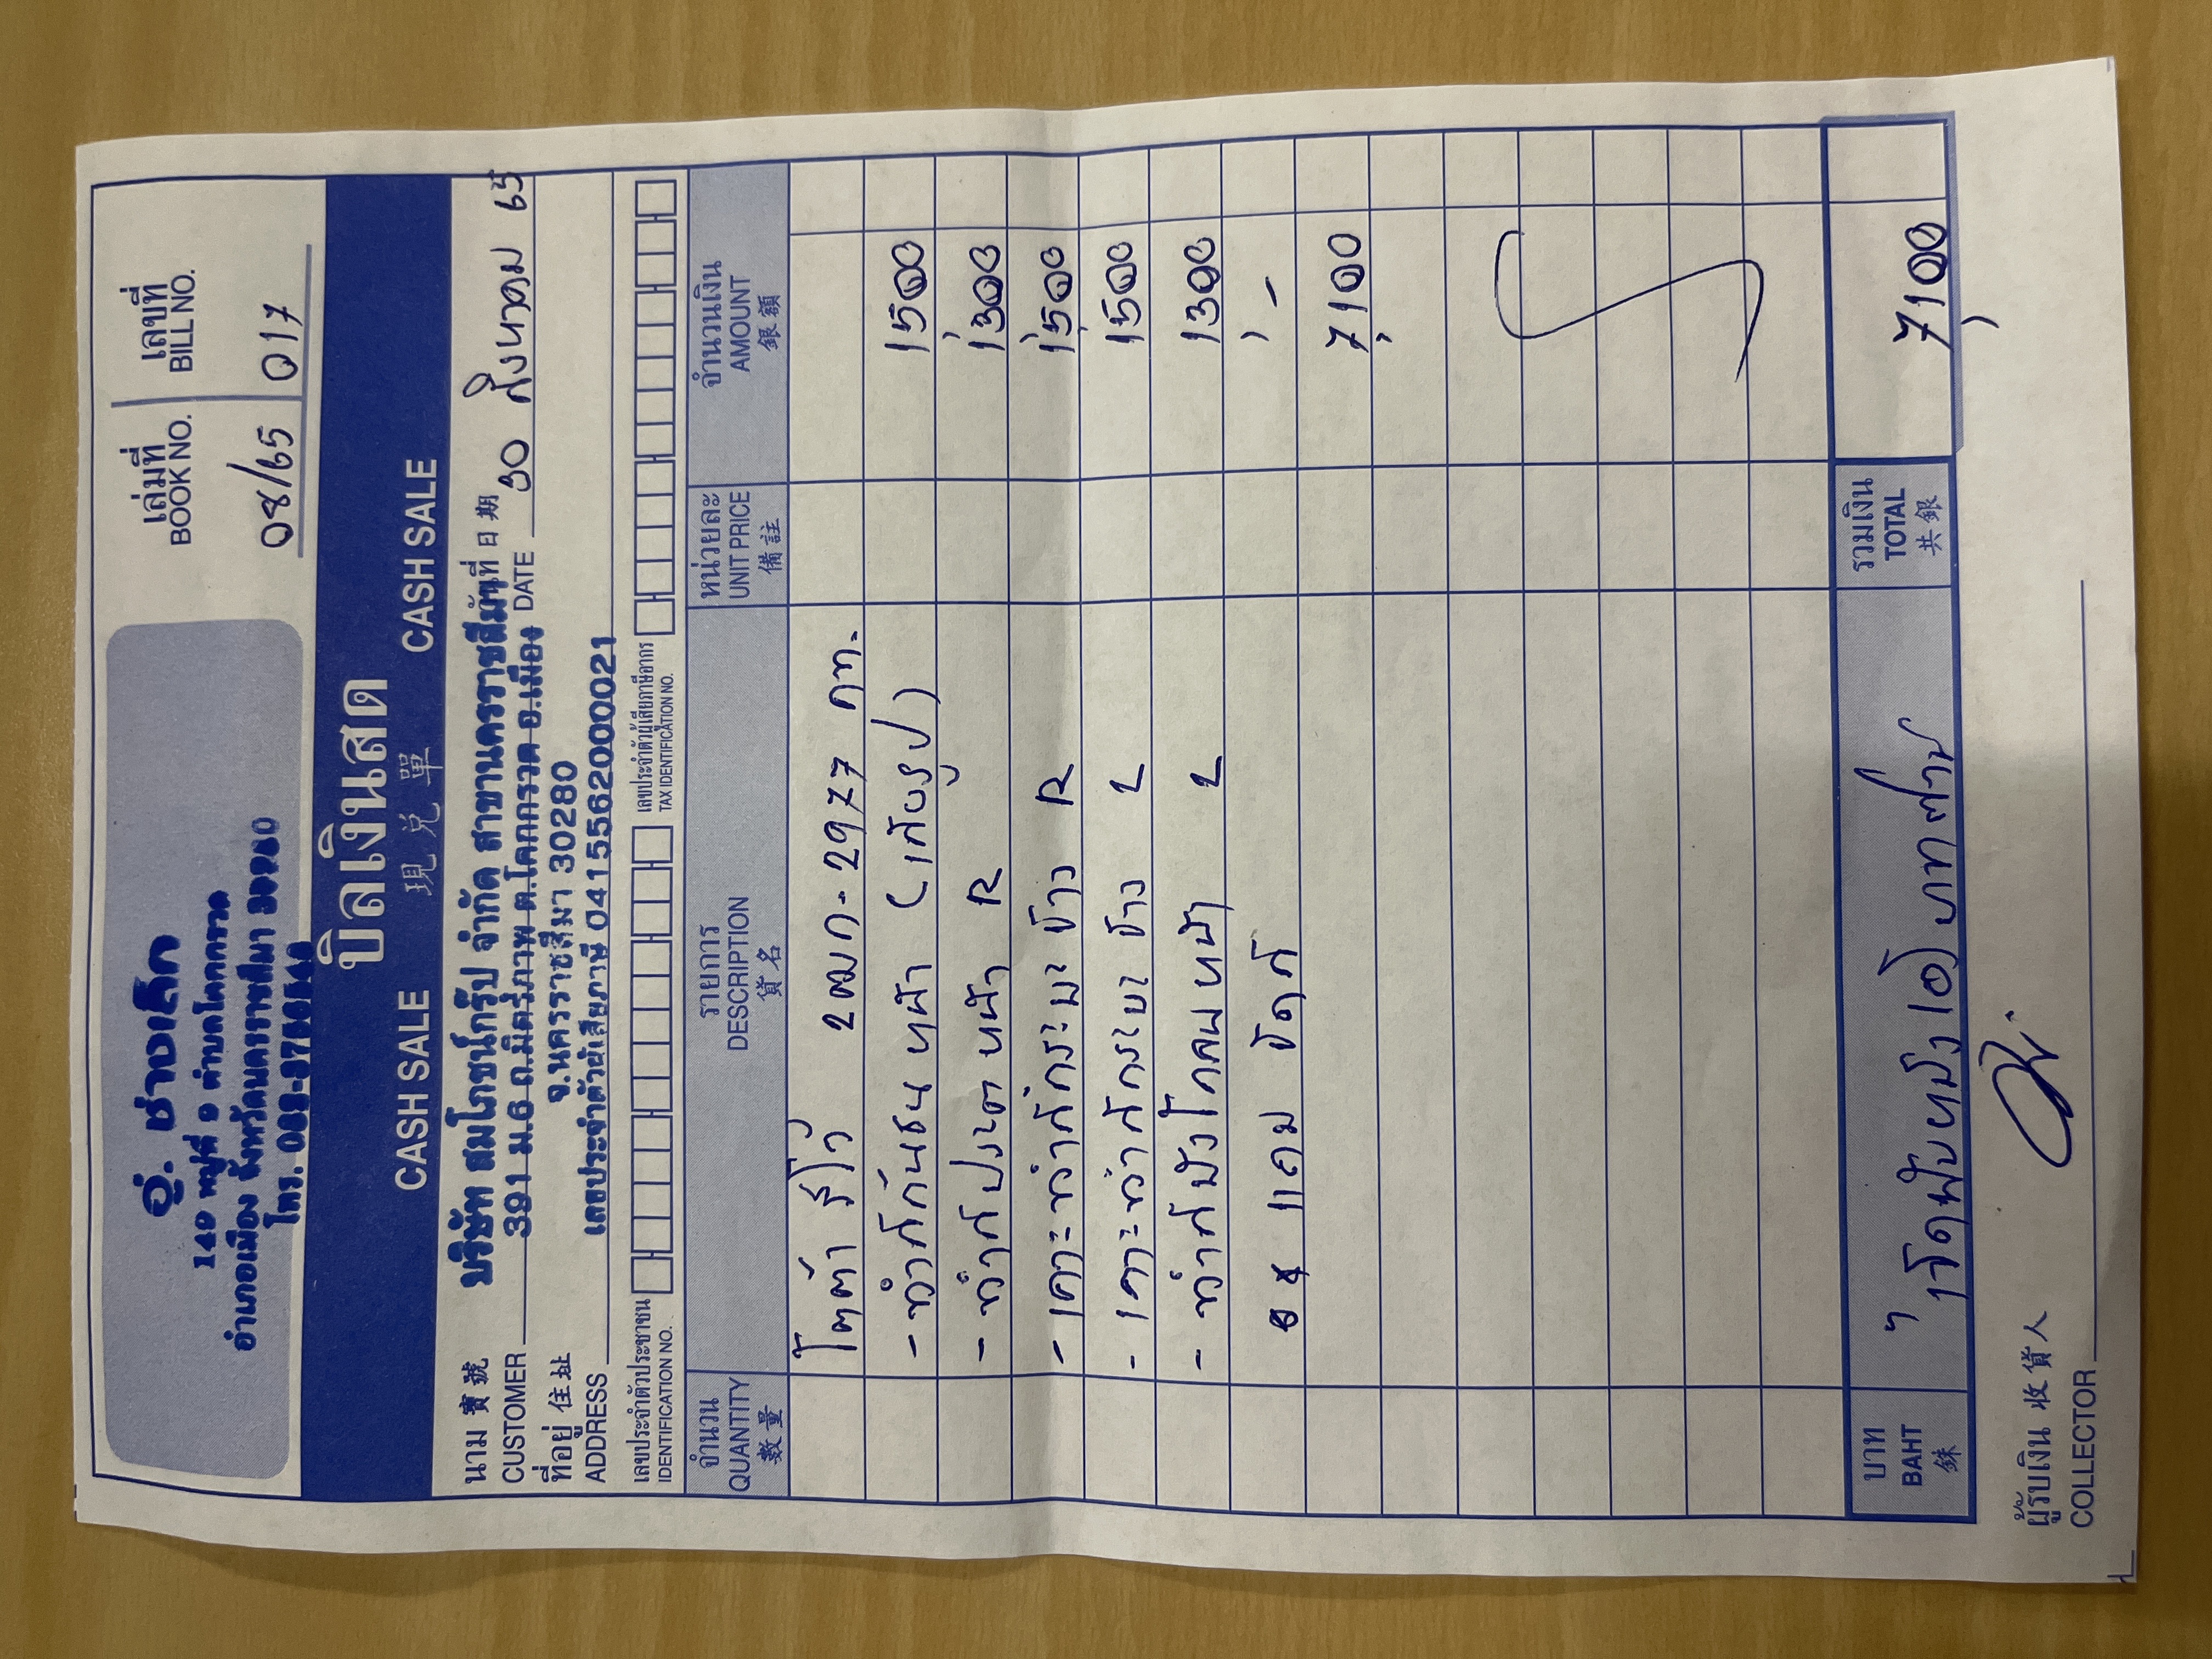 อู่. ช่างเล็ก
149 หมู่ที่ 9 ตำบลโคกกรวด
อำเภอเมือง จังหวัดนครราชสีมา 30280
โทร.
เล่มที่ เลขที่
BOOK NO. BILL NO.
08/65 017
บิลเงินสด
CASH SALE 現兌單 CASH SALE
นาม 寶號 บริษัท สมโภชน์กรุ๊ป จำกัด สาขานครราชสีมา วันที่ 日期
CUSTOMER 391 ม.6 ถ.มิตรภาพ ต.โคกกรวด อ.เมือง DATE 30 สิงหาคม 65
ที่อยู่ 住址 จ.นครราชสีมา 30280
ADDRESS เลขประจำตัวผู้เสียภาษี 0415562000021
เลขประจำตัวประชาชน เลขประจำตัวผู้เสียภาษีอากร
IDENTIFICATION NO. TAX IDENTIFICATION NO.
จำนวน รายการ หน่วยละ จำนวนเงิน
QUANTITY DESCRIPTION UNIT PRICE AMOUNT
數量 貨名 備註 銀額
โตต้า รีโว่ 2ฒก-2977 กท.
- ทำสีกันชน หน้า (เก็บรูป) 1500
- ทำสีประตู หน้า R 1,300
- เคาะทำสีกระบะ ข้าง R 1,500
- เคาะทำสีกระบะ ข้าง L 1500
- ทำสีบังโคลนหน้า L 1300
** แถม ขัดสี , -
7,100
บาท รวมเงิน
BAHT (เจ็ดพันหนึ่งร้อยบาทถ้วน) TOTAL 7,100
銖 共銀
ผู้รับเงิน 收貨人
COLLECTOR